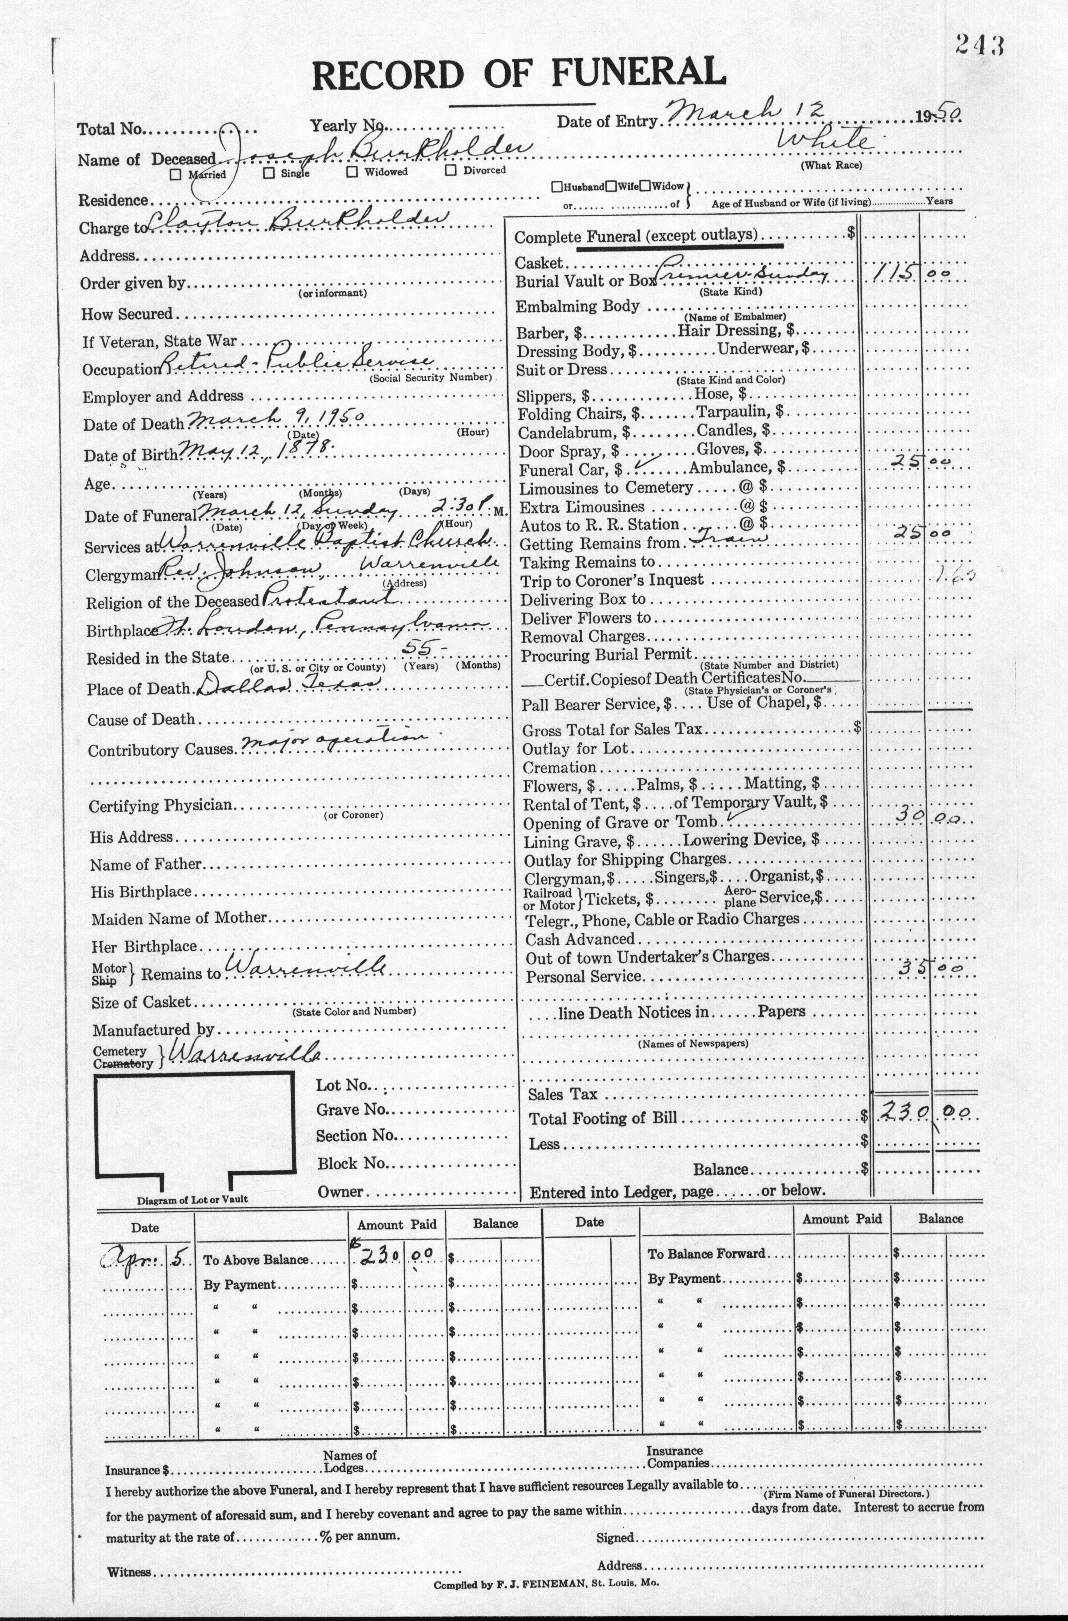 243
RECORD OF FUNERAL
Total No. Yearly No. Date of Entry March 12 1950
Name of Deceased Joseph Burkholder White
☐ Married ☐ Single ☐ Widowed ☐ Divorced (What Race)
Residence
☐Husband☐Wife☐Widow } or of Age of Husband or Wife (if living) Years
Charge to Clayton Burkholder
Address
Order given by
(or informant)
How Secured
If Veteran, State War
Occupation Retired - Public Service
(Social Security Number)
Employer and Address
Date of Death March 9, 1950
(Date) (Hour)
Date of Birth May 12, 1878
Age
(Years) (Months) (Days)
Date of Funeral March 12, Sunday 2:30 P. M.
(Date) (Day of Week) (Hour)
Services at Warrenville Baptist Church
Clergyman Rev. Johnson, Warrenville
(Address)
Religion of the Deceased Protestant
Birthplace Ft. Loudon, Pennsylvania
Resided in the State 55 -
(or U. S. or City or County) (Years) (Months)
Place of Death Dallas Texas
Cause of Death
Contributory Causes major operation
Certifying Physician
(or Coroner)
His Address
Name of Father
His Birthplace
Maiden Name of Mother
Her Birthplace
Motor Ship } Remains to Warrenville
Size of Casket
(State Color and Number)
Manufactured by
Cemetery Crematory } Warrenville
Lot No.
Grave No.
Section No.
Block No.
Owner
Diagram of Lot or Vault
Complete Funeral (except outlays) $
Casket
Burial Vault or Box Premier Sunday 115 00
(State Kind)
Embalming Body
(Name of Embalmer)
Barber, $ Hair Dressing, $
Dressing Body, $ Underwear, $
Suit or Dress
(State Kind and Color)
Slippers, $ Hose, $
Folding Chairs, $ Tarpaulin, $
Candelabrum, $ Candles, $
Door Spray, $ Gloves, $
Funeral Car, $ ✓ Ambulance, $ 25 00
Limousines to Cemetery @ $
Extra Limousines @ $
Autos to R. R. Station @ $
Getting Remains from Train 25 00
Taking Remains to
Trip to Coroner's Inquest
Delivering Box to
Deliver Flowers to
Removal Charges
Procuring Burial Permit
(State Number and District)
Certif. Copies of Death Certificates No.
(State Physician's or Coroner's
Pall Bearer Service, $ Use of Chapel, $
Gross Total for Sales Tax $
Outlay for Lot
Cremation
Flowers, $ Palms, $ Matting, $
Rental of Tent, $ of Temporary Vault, $
Opening of Grave or Tomb ✓ 30 00
Lining Grave, $ Lowering Device, $
Outlay for Shipping Charges
Clergyman, $ Singers, $ Organist, $
Railroad or Motor } Tickets, $ Aero-plane Service, $
Telegr., Phone, Cable or Radio Charges
Cash Advanced
Out of town Undertaker's Charges
Personal Service 35 00
line Death Notices in Papers
(Names of Newspapers)
Sales Tax
Total Footing of Bill $ 230 00
Less $
Balance $
Entered into Ledger, page or below.
Date Amount Paid Balance Date Amount Paid Balance
Apr. 5 To Above Balance 230 00 $ To Balance Forward $
By Payment $ $ By Payment $ $
" " $ $ " " $ $
" " $ $ " " $ $
" " $ $ " " $ $
" " $ $ " " $ $
" " $ $ " " $ $
" " $ $ " " $ $
Insurance $ Names of Lodges Insurance Companies
I hereby authorize the above Funeral, and I hereby represent that I have sufficient resources Legally available to
(Firm Name of Funeral Directors.)
for the payment of aforesaid sum, and I hereby covenant and agree to pay the same within days from date. Interest to accrue from
maturity at the rate of % per annum. Signed
Witness Address
Compiled by F. J. FEINEMAN, St. Louis, Mo.